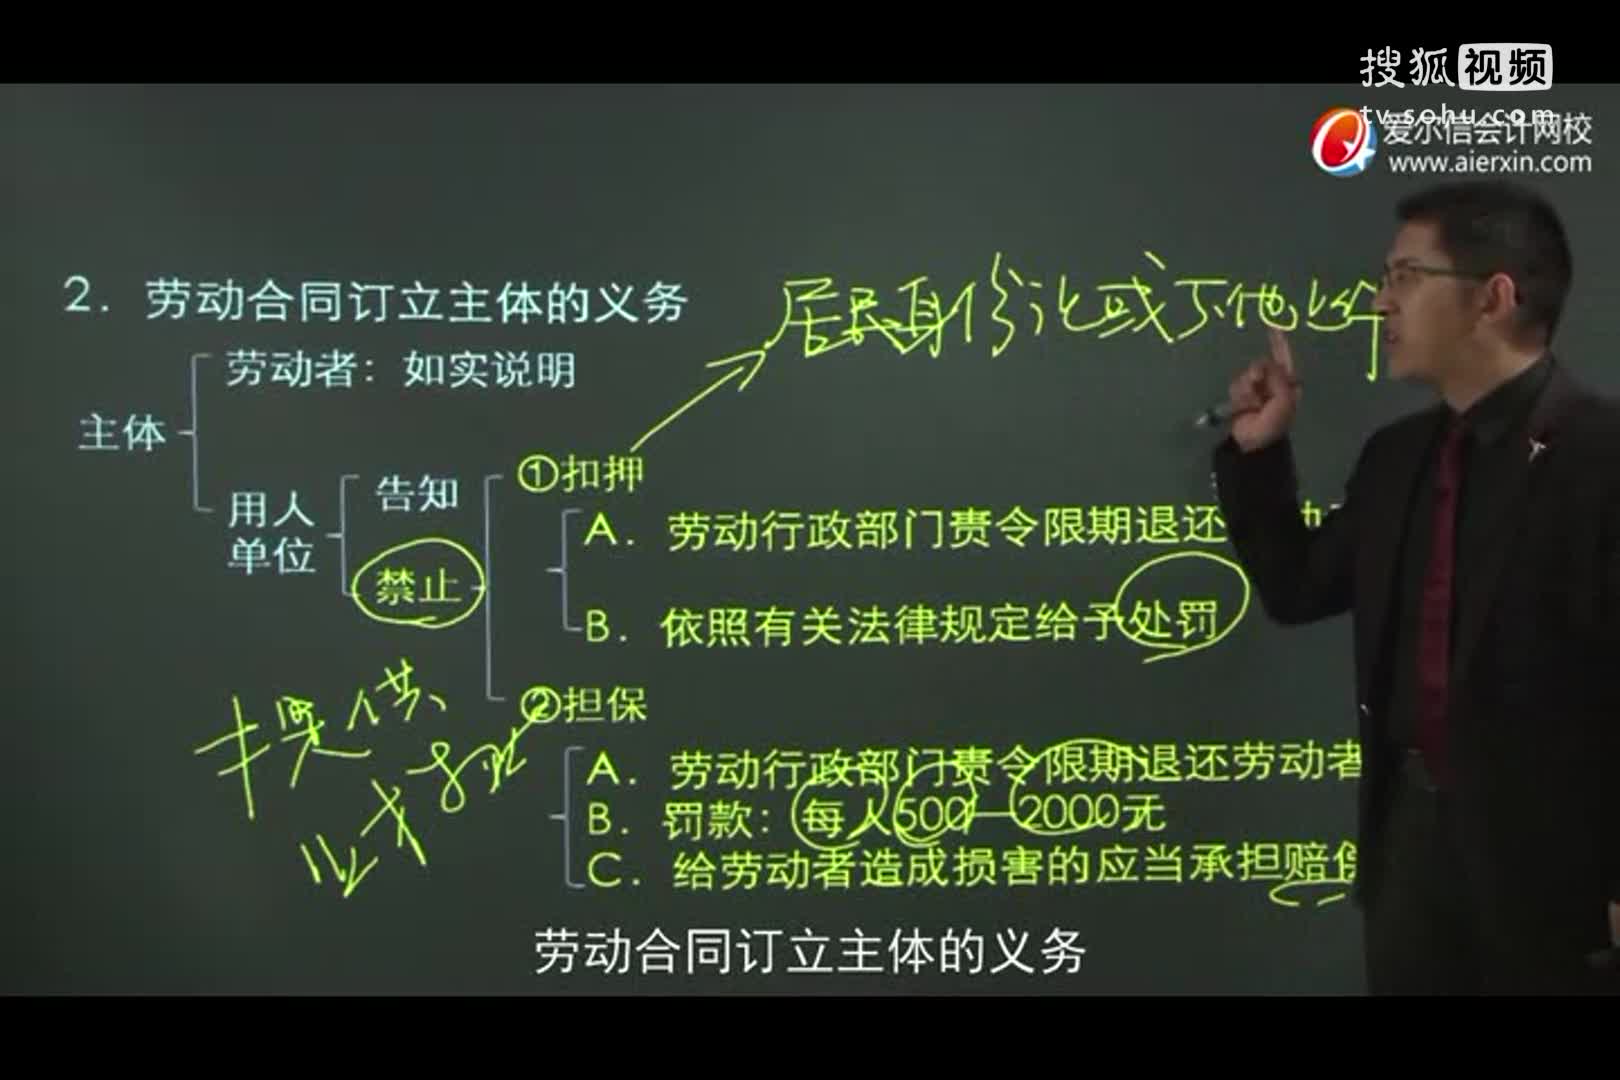 搜狐视频
tv.sohu.com
爱尔信会计网校
www.aierxin.com
2. 劳动合同订立主体的义务
居民身份证或其他证件
劳动者：如实说明
主体
用人单位
告知
禁止
①扣押
A. 劳动行政部门责令限期退还
B. 依照有关法律规定给予处罚
提供
②担保
A. 劳动行政部门责令限期退还劳动者
B. 罚款：每人500—2000元
C. 给劳动者造成损害的应当承担赔偿
劳动合同订立主体的义务